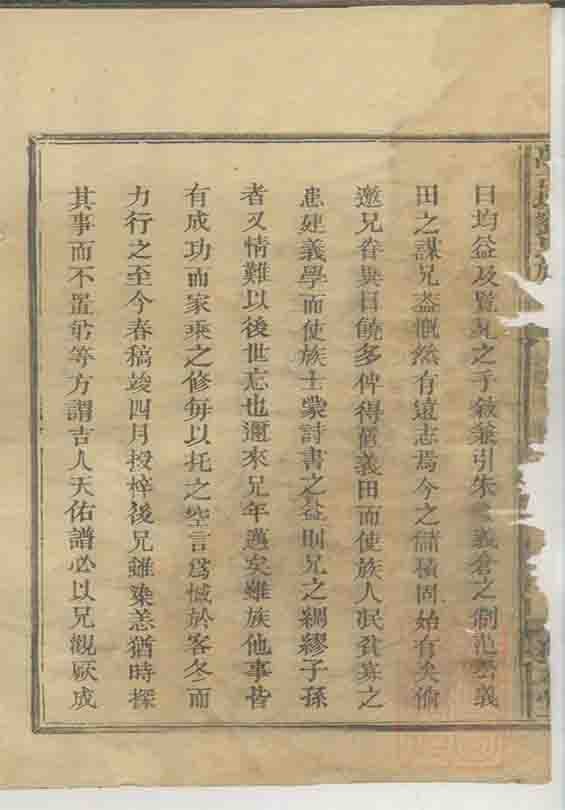 曰均益及覽兄之手敘兼引朱義倉之制范公義
田之謀兄蓋慨然有遠志焉今之儲積固始有矣倘
邀兄眷異日饒多俾得置義田而使族人泯貧寡之
患建義學而使族士蒙詩書之益則兄之綢繆子孫
者又情難以後世忘也邇來兄年邁矣雖族他事皆
有成功而家乘之修每以托之空言爲憾於客冬而
力行之至今春稿竣四月授梓後兄雖染恙猶時探
其事而不置弟等方謂吉人天佑譜必以兄觀厥成